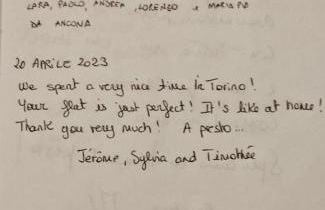 LARA, PAOLO, ANDREA, LORENZO e MARIA PIA
DA ANCONA
20 APRILE 2023
We spent a very nice time in Torino!
Your flat is just perfect! It's like at home!
Thank you very much! A presto...
Jérôme, Sylvia and Timothée